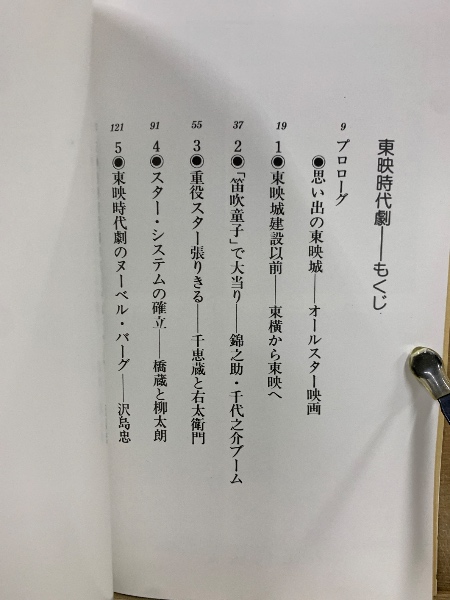 東映時代劇──もくじ
9 プロローグ
◉思い出の東映城──オールスター映画
19 1◉東映城建設以前──東横から東映へ
37 2◉「笛吹童子」で大当り──錦之助・千代之介ブーム
55 3◉重役スター張りきる──千恵蔵と右太衛門
91 4◉スター・システムの確立──橋蔵と柳太朗
121 5◉東映時代劇のヌーベル・バーグ──沢島忠